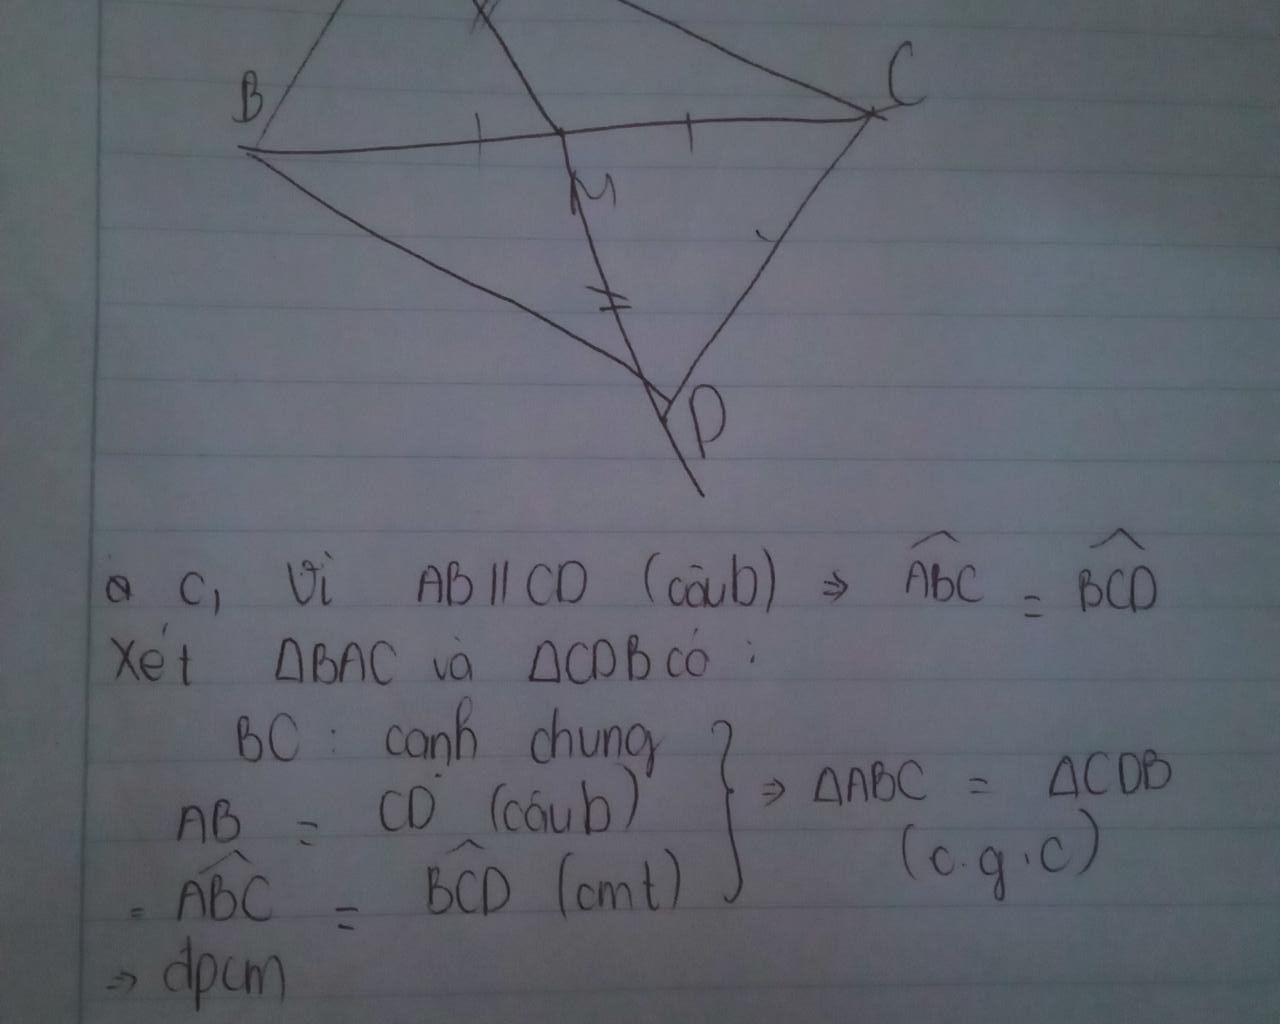 B
C
M
D
c, Vì AB // CD (câu b) ⇒ \widehat{ABC} = \widehat{BCD}
Xét ΔBAC và ΔCDB có :
BC : cạnh chung
AB = CD (câu b)
\widehat{ABC} = \widehat{BCD} (cmt)
⇒ ΔABC = ΔCDB
(c.g.c)
⇒ đpcm